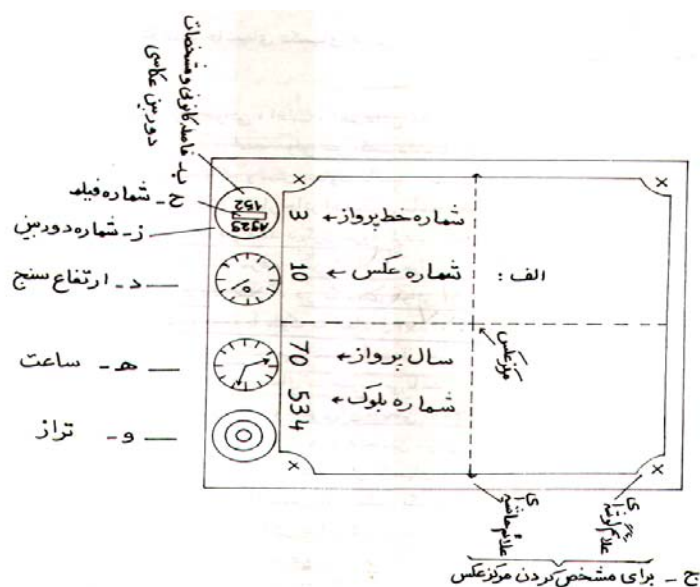 ب - فاصله کانونی و مشخصات
دوربین عکاسی
ح - شماره فیلم
ز - شماره دوربین
د - ارتفاع سنج
ه - ساعت
و - تراز
152
1323
3
شماره خط پرواز
10
شماره عکس
70
سال پرواز
534
شماره بلوک
الف :
مرکز عکس
علائم حاشیه ای
علائم گوشه ای
ح - برای مشخص کردن مرکز عکس